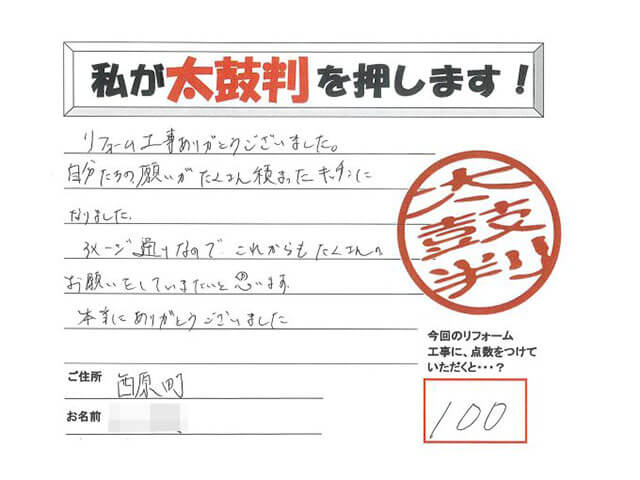 私が太鼓判を押します!
リフォーム工事ありがとうございました。
自分たちの願いがたくさん積まったキッチンに
なりました。
イメージ通りなので これからもたくさんの
お願いをしていきたいと思います
本当にありがとうございました
太鼓判
今回のリフォーム
工事に、点数をつけて
いただくと・・・?
100
ご住所 西原町
お名前